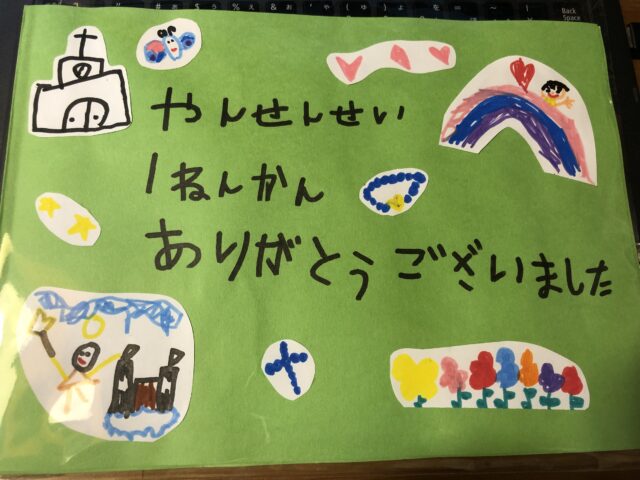 やんせんせい
1ねんかん
ありがとうございました